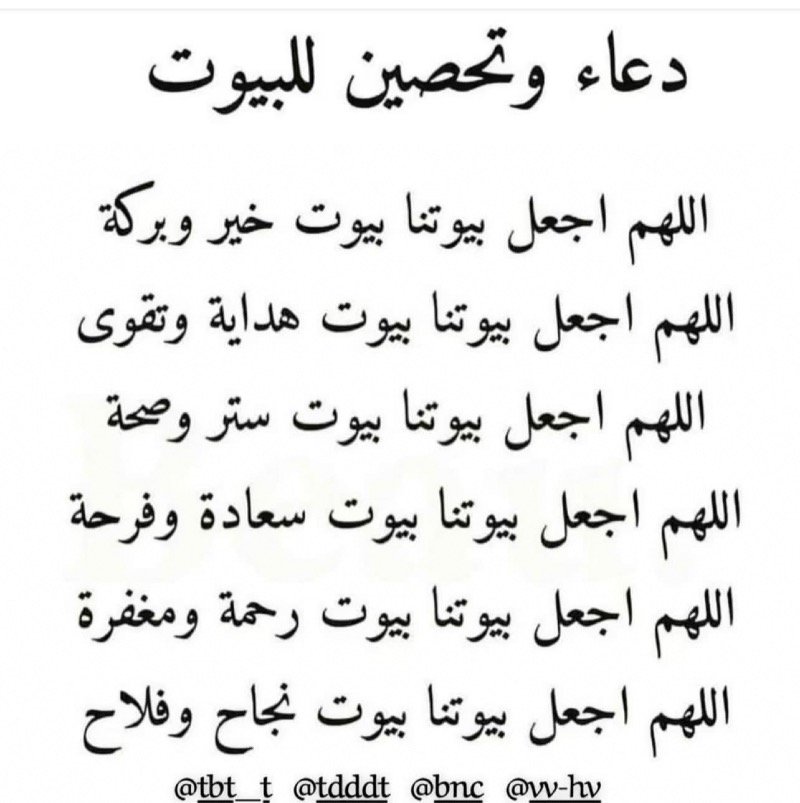 دعاء وتحصين للبيوت
اللهم اجعل بيوتنا بيوت خير وبركة
اللهم اجعل بيوتنا بيوت هداية وتقوى
اللهم اجعل بيوتنا بيوت ستر وصحة
اللهم اجعل بيوتنا بيوت سعادة وفرحة
اللهم اجعل بيوتنا بيوت رحمة ومغفرة
اللهم اجعل بيوتنا بيوت نجاح وفلاح
@tbt_t @tdddt @bnc @vv-hv